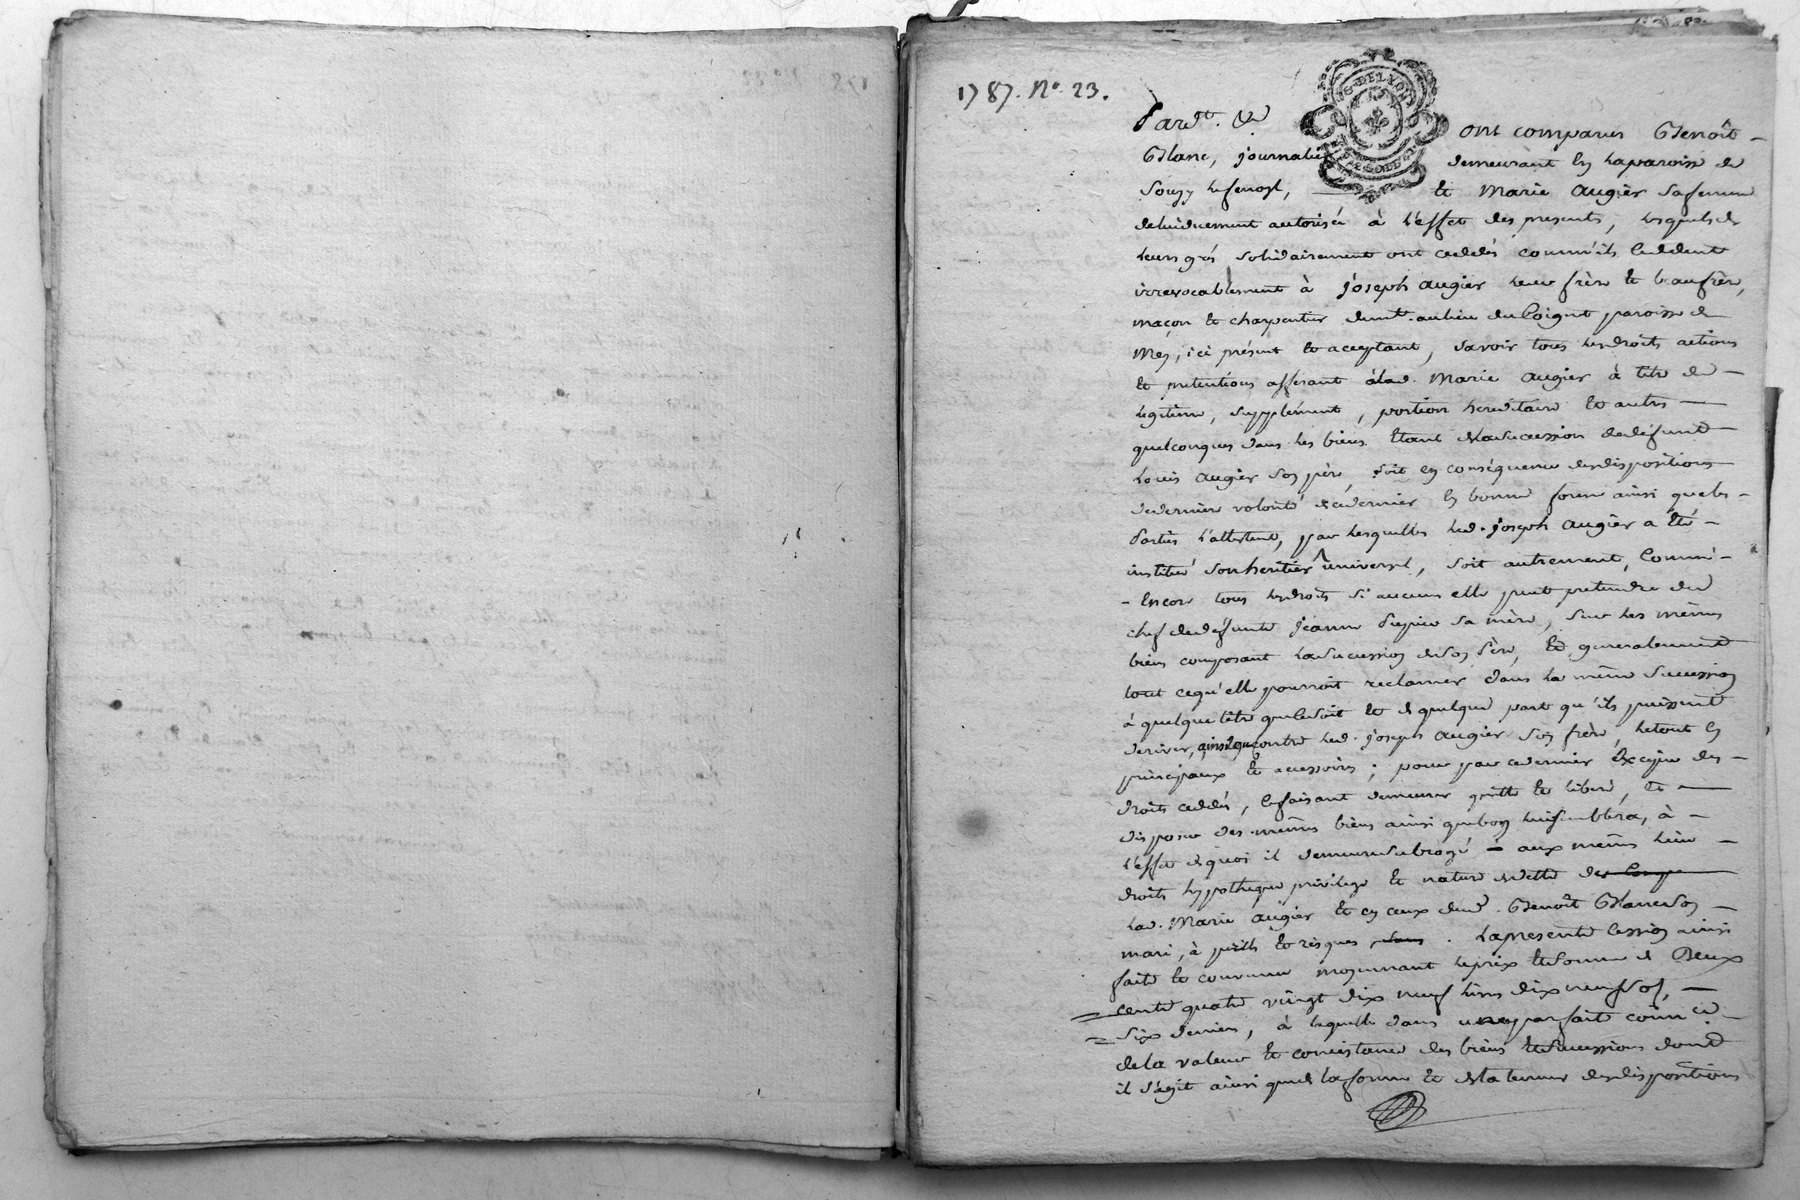 1787. N° 23.
G. DE LYON
Pardt. &
ont comparus Benoît
Blanc, journalier demeurant en laparoisse de
Souzy et Marie Augier safemme
deluiduement autorisée à l'effet des presents, lesquels de
leurs grés solidairement ont ceddés comm'ils ceddent
irrevocablement à joseph augier leur frère et beaufrère,
maçon et charpentier demt. aulieu du paroisse de
Mey, ici présent et acceptant, savoir tous lesdroits actions
et pretentions afferant àlad. Marie augier à titre de
legitime, supplément, portion hereditaire et autres
quelconques dans les biens étant delasucession dedéfunt
Louis augier son père, soit en conséquence desdispositions
dederniere volonté decedernier en bonne forme ainsi queles
Parties l'attestent, par lesquelles led. joseph augier a été
institué sonheritier universel, soit autrement, comme
encore tous lesdroits si aucuns elle peut pretendre du
chef dedéfunte jeanne sa mère, sur les mêmes
biens composant lasucession deson Père, et generalement
tout cequ'elle pourroit reclamer dans la même sucession
à quelque titre quecesoit et de quelque part qu'ils puissent
deriver, ainsique contre led. joseph augier son frère, letout en
principaux et accessoires; pour par cedernier des
droits ceddés, lefaisant demeurer quitte et liberé, et
disposer des mêmes biens ainsi quebon luisemblera, à
l'effet dequoi il demeuresubrogé aux mêmes lieu
droits hypotheque privilege et nature dedette de
lad. Marie augier et en ceux dud. Benoît Blancson
mari, à perils et risques . Lapresente cession ainsi
faite et convenue moyennant leprix etsomme de Deux
cents quatre vingt dix neuf livres dix neufsols,
six deniers, à laquelle dans
dela valeur et consistance des biens etsucessions dont
il s'agit ainsi quede laforme et delateneur desdispositions